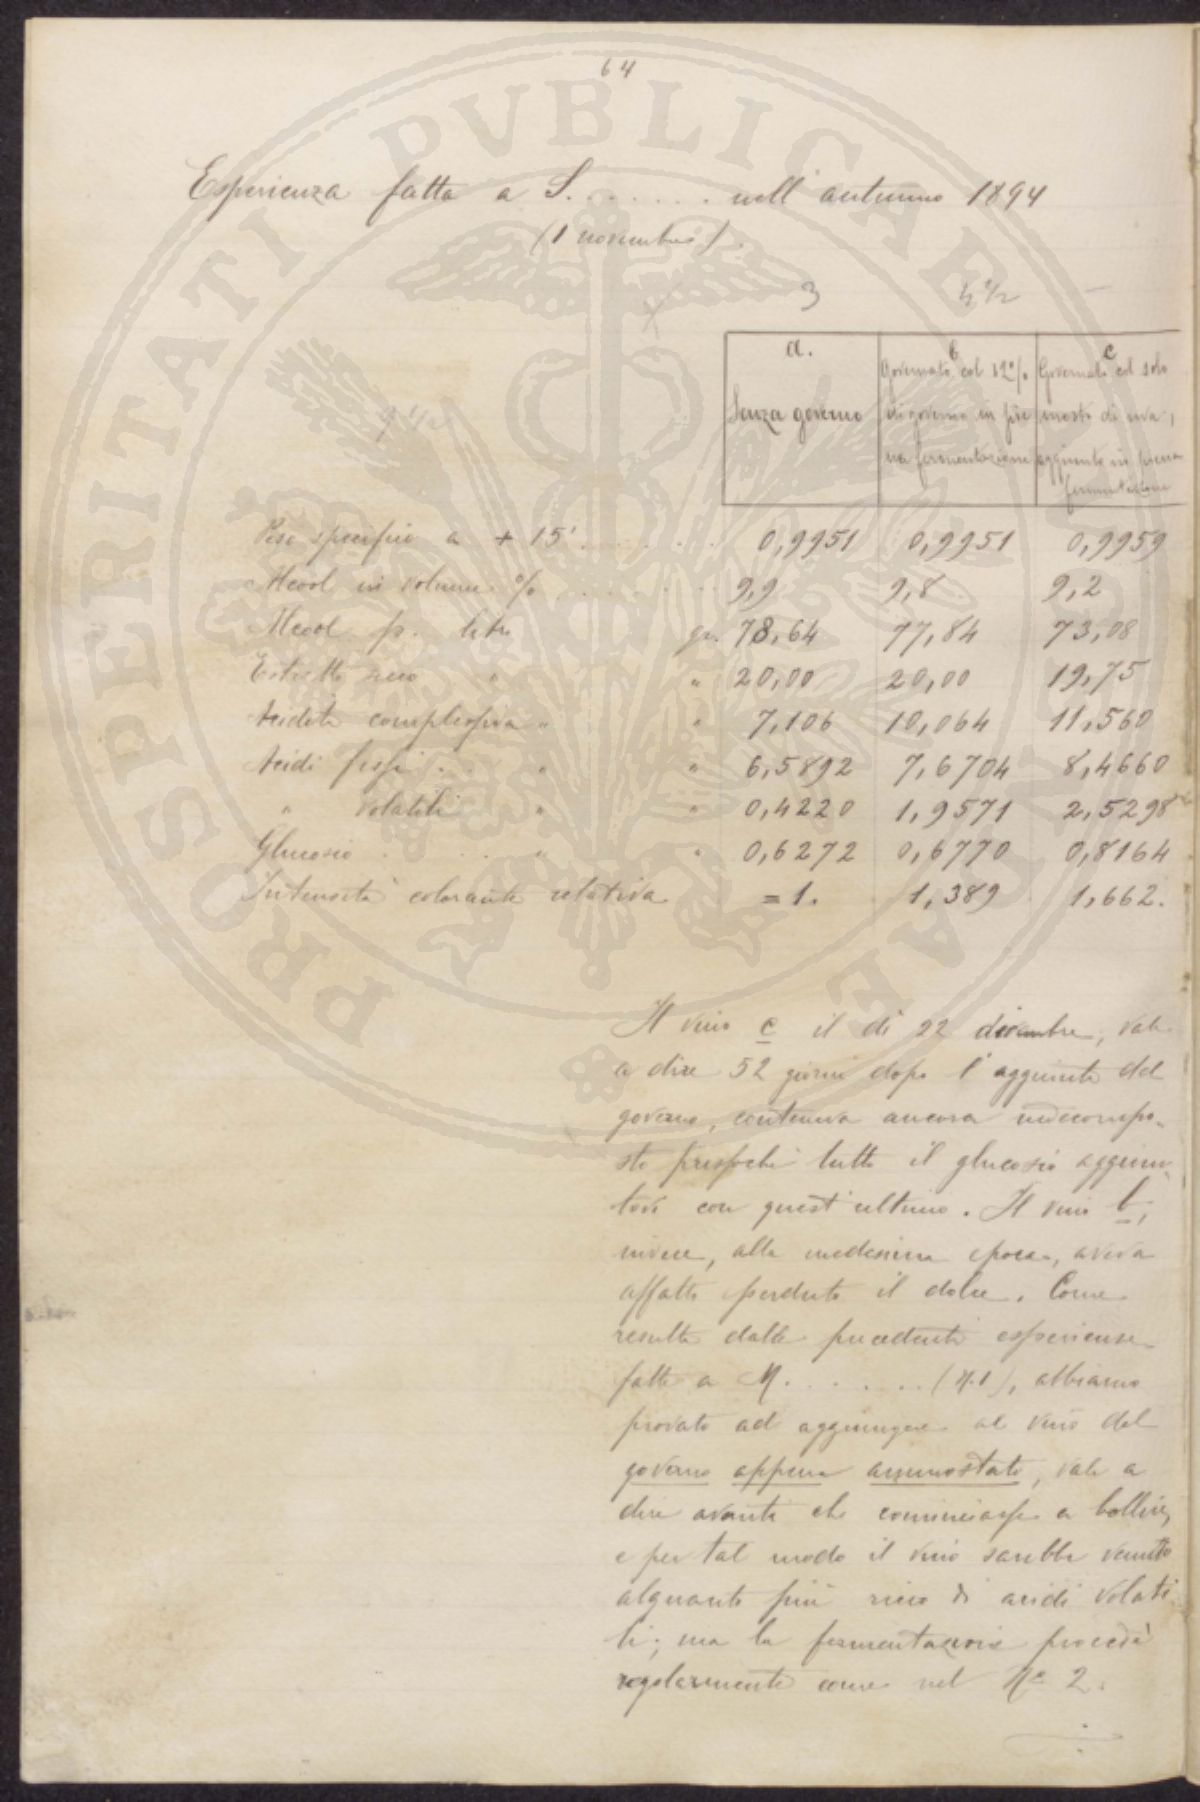 64
PROSPERITATI PVBLICAE AVGENDAE
Esperienza fatta a S. . . . . . . nell' autunno 1894
(1 novembre).
3 4 1/2
9 1/2
a. b c
Senza governo
Governato col 12% di governo in piena fermentazione
Governato col solo mosto di uva, aggiunto in piena fermentazione
Peso specifico a + 15° . . . . . . 0,9951 0,9951 0,9959
Alcool in volume % . . . . . . 9,9 9,8 9,2
Alcool p. litro gr. 78,64 77,84 73,08
Estratto secco " " 20,00 20,00 19,75
Acidità complessiva " " 7,106 10,064 11,560
Acidi fissi . . . " " 6,5892 7,6704 8,4660
" volatili " " 0,4220 1,9571 2,5298
Glucosio . . . " " 0,6272 0,6770 0,8164
Intensità colorante relativa =1. 1,389 1,662.
Il vino c il dì 22 dicembre, vale
a dire 52 giorni dopo l'aggiunta del
governo, conteneva ancora indecompo-
sto pressochè tutto il glucosio aggiun-
tovi con quest'ultimo. Il vino b,
invece, alla medesima epoca, aveva
affatto perduto il dolce. Come
resulta dalle precedenti esperienze
fatte a M. . . . . . . (N.1), abbiamo
provato ad aggiungere al vino del
governo appena ammostato, vale a
dire avanti che cominciasse a bollire,
e per tal modo il vino sarebbe venuto
alquanto più ricco di acidi volati
li; ma la fermentazione procedè
regolarmente come nel No 2.